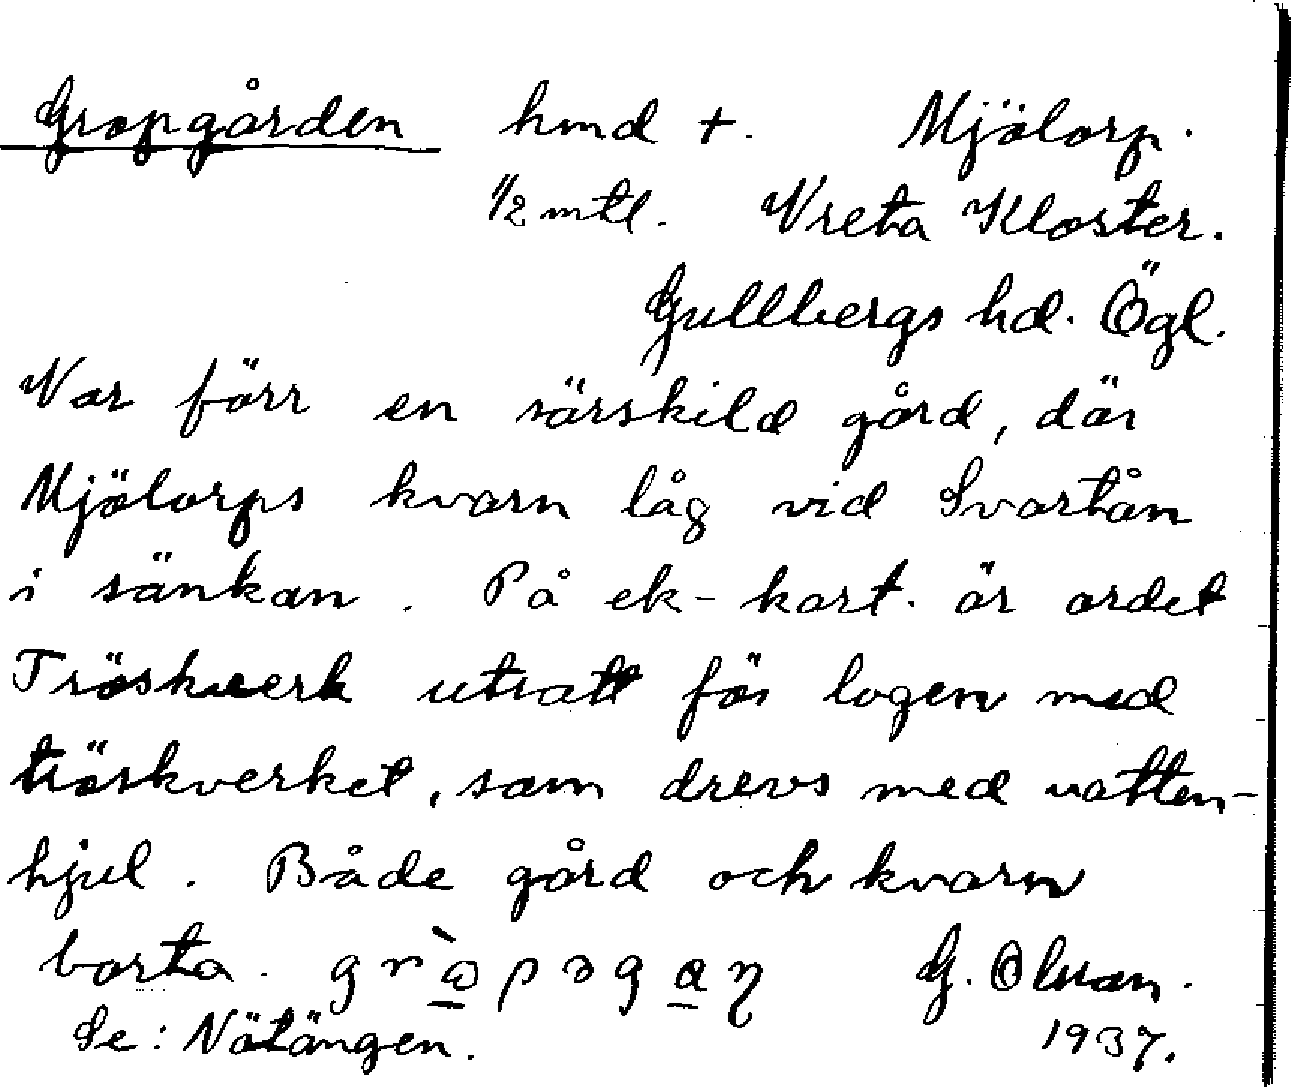 Gropgården hmd +. Mjölorp.
1/2 mtl. Vreta Kloster.
Gullbergs hd. Ögl.
Var förr en särskild gård, där
Mjölorps kvarn låg vid Svartån
i sänkan. På ek-kart. är ordet
Tröskverk utsatt för logen med
tröskverket, som drevs med vatten-
hjul. Både gård och kvarn
borta. G. Olsson.
Se: Nötängen. 1937.